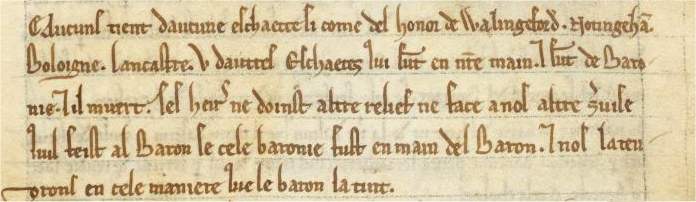 E daucuns tient daucune eschaette si come del honor de Walingeford. Notingehā.
Boloigne. Lancastre. v dautres Eschaetes ki sūt en nr̄e main. ⁊ sūt de Baro
nie. ⁊ il muert. ses heirs ne doinst altre relief ne face a nos altre suise
kuil feist al Baron se cele baronie fust en main del Baron. ⁊ nos la ten
drons en cele maniere kue le baron la tint.